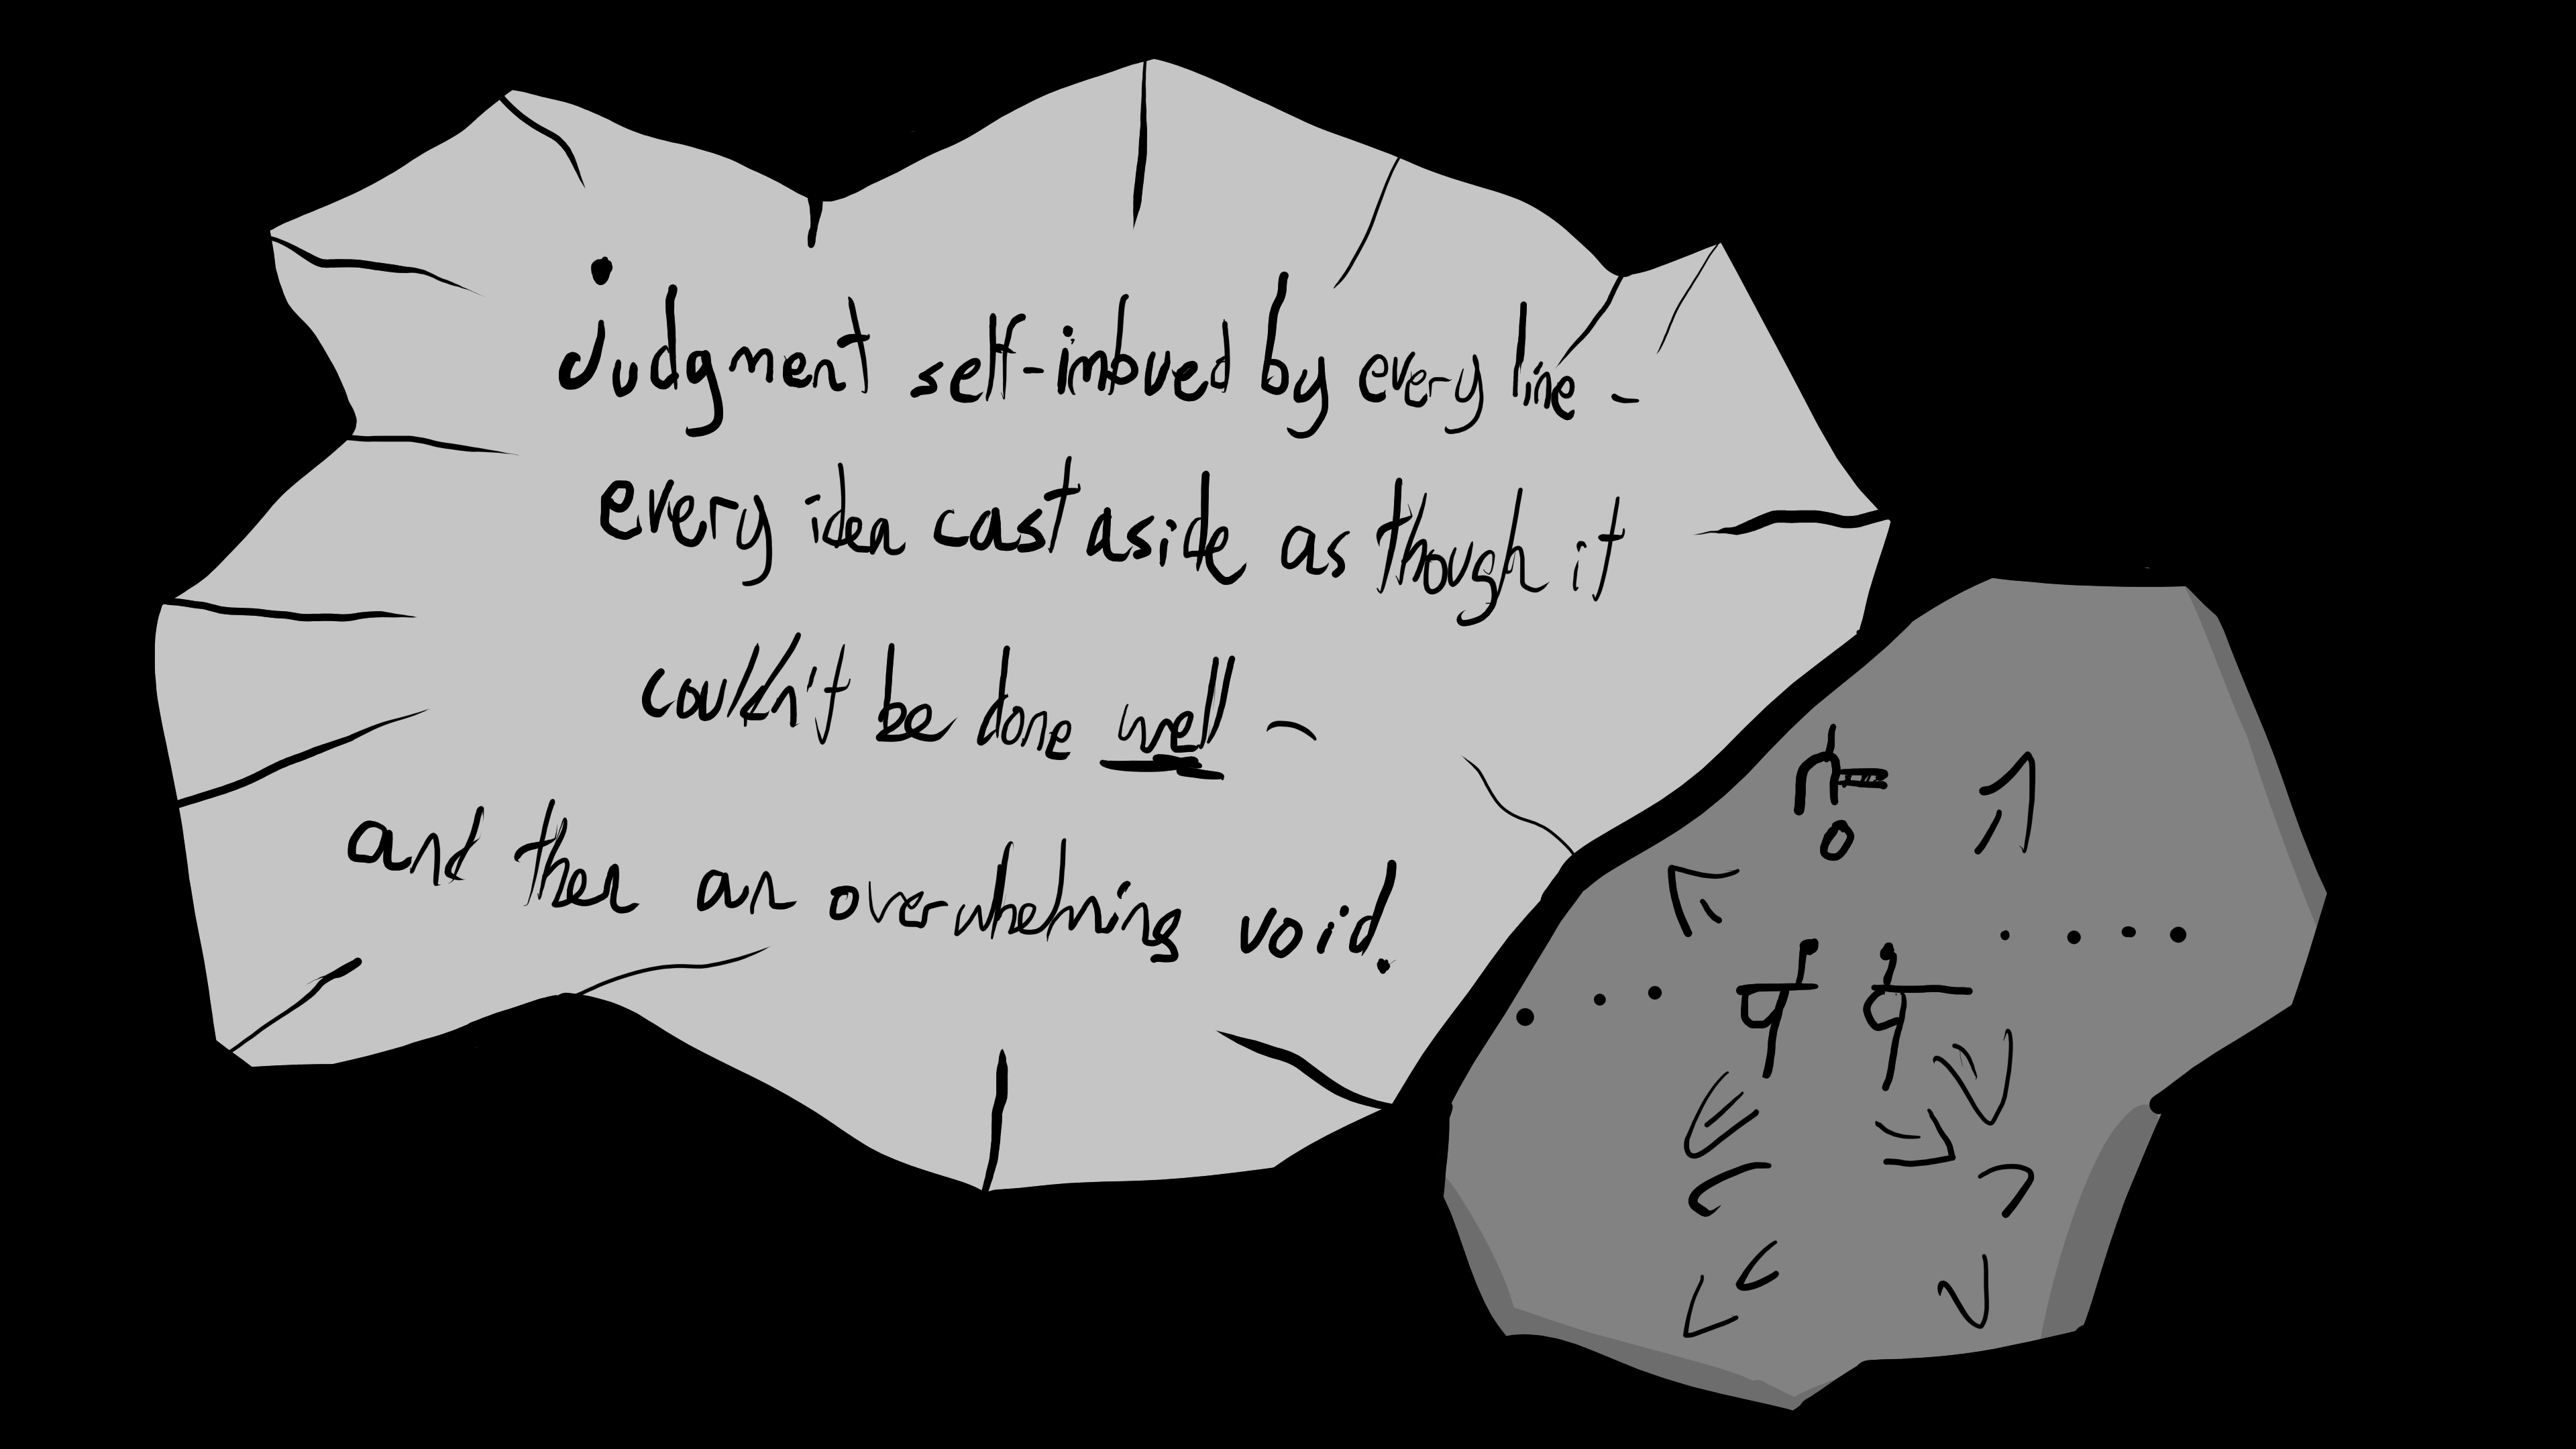 judgment self-imbued by every line -
every idea cast aside as though it
couldn't be done well -
and then an overwhelming void.